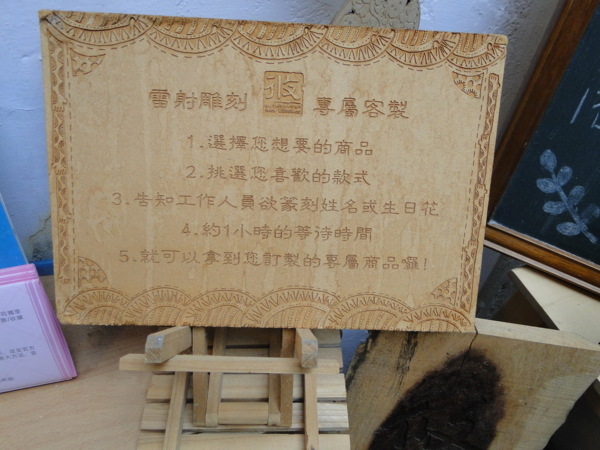 雷射雕刻 收 專屬客製
1.選擇您想要的商品
2.挑選您喜歡的款式
3.告知工作人員欲篆刻姓名或生日花
4.約1小時的等待時間
5.就可以拿到您訂製的專屬商品囉!